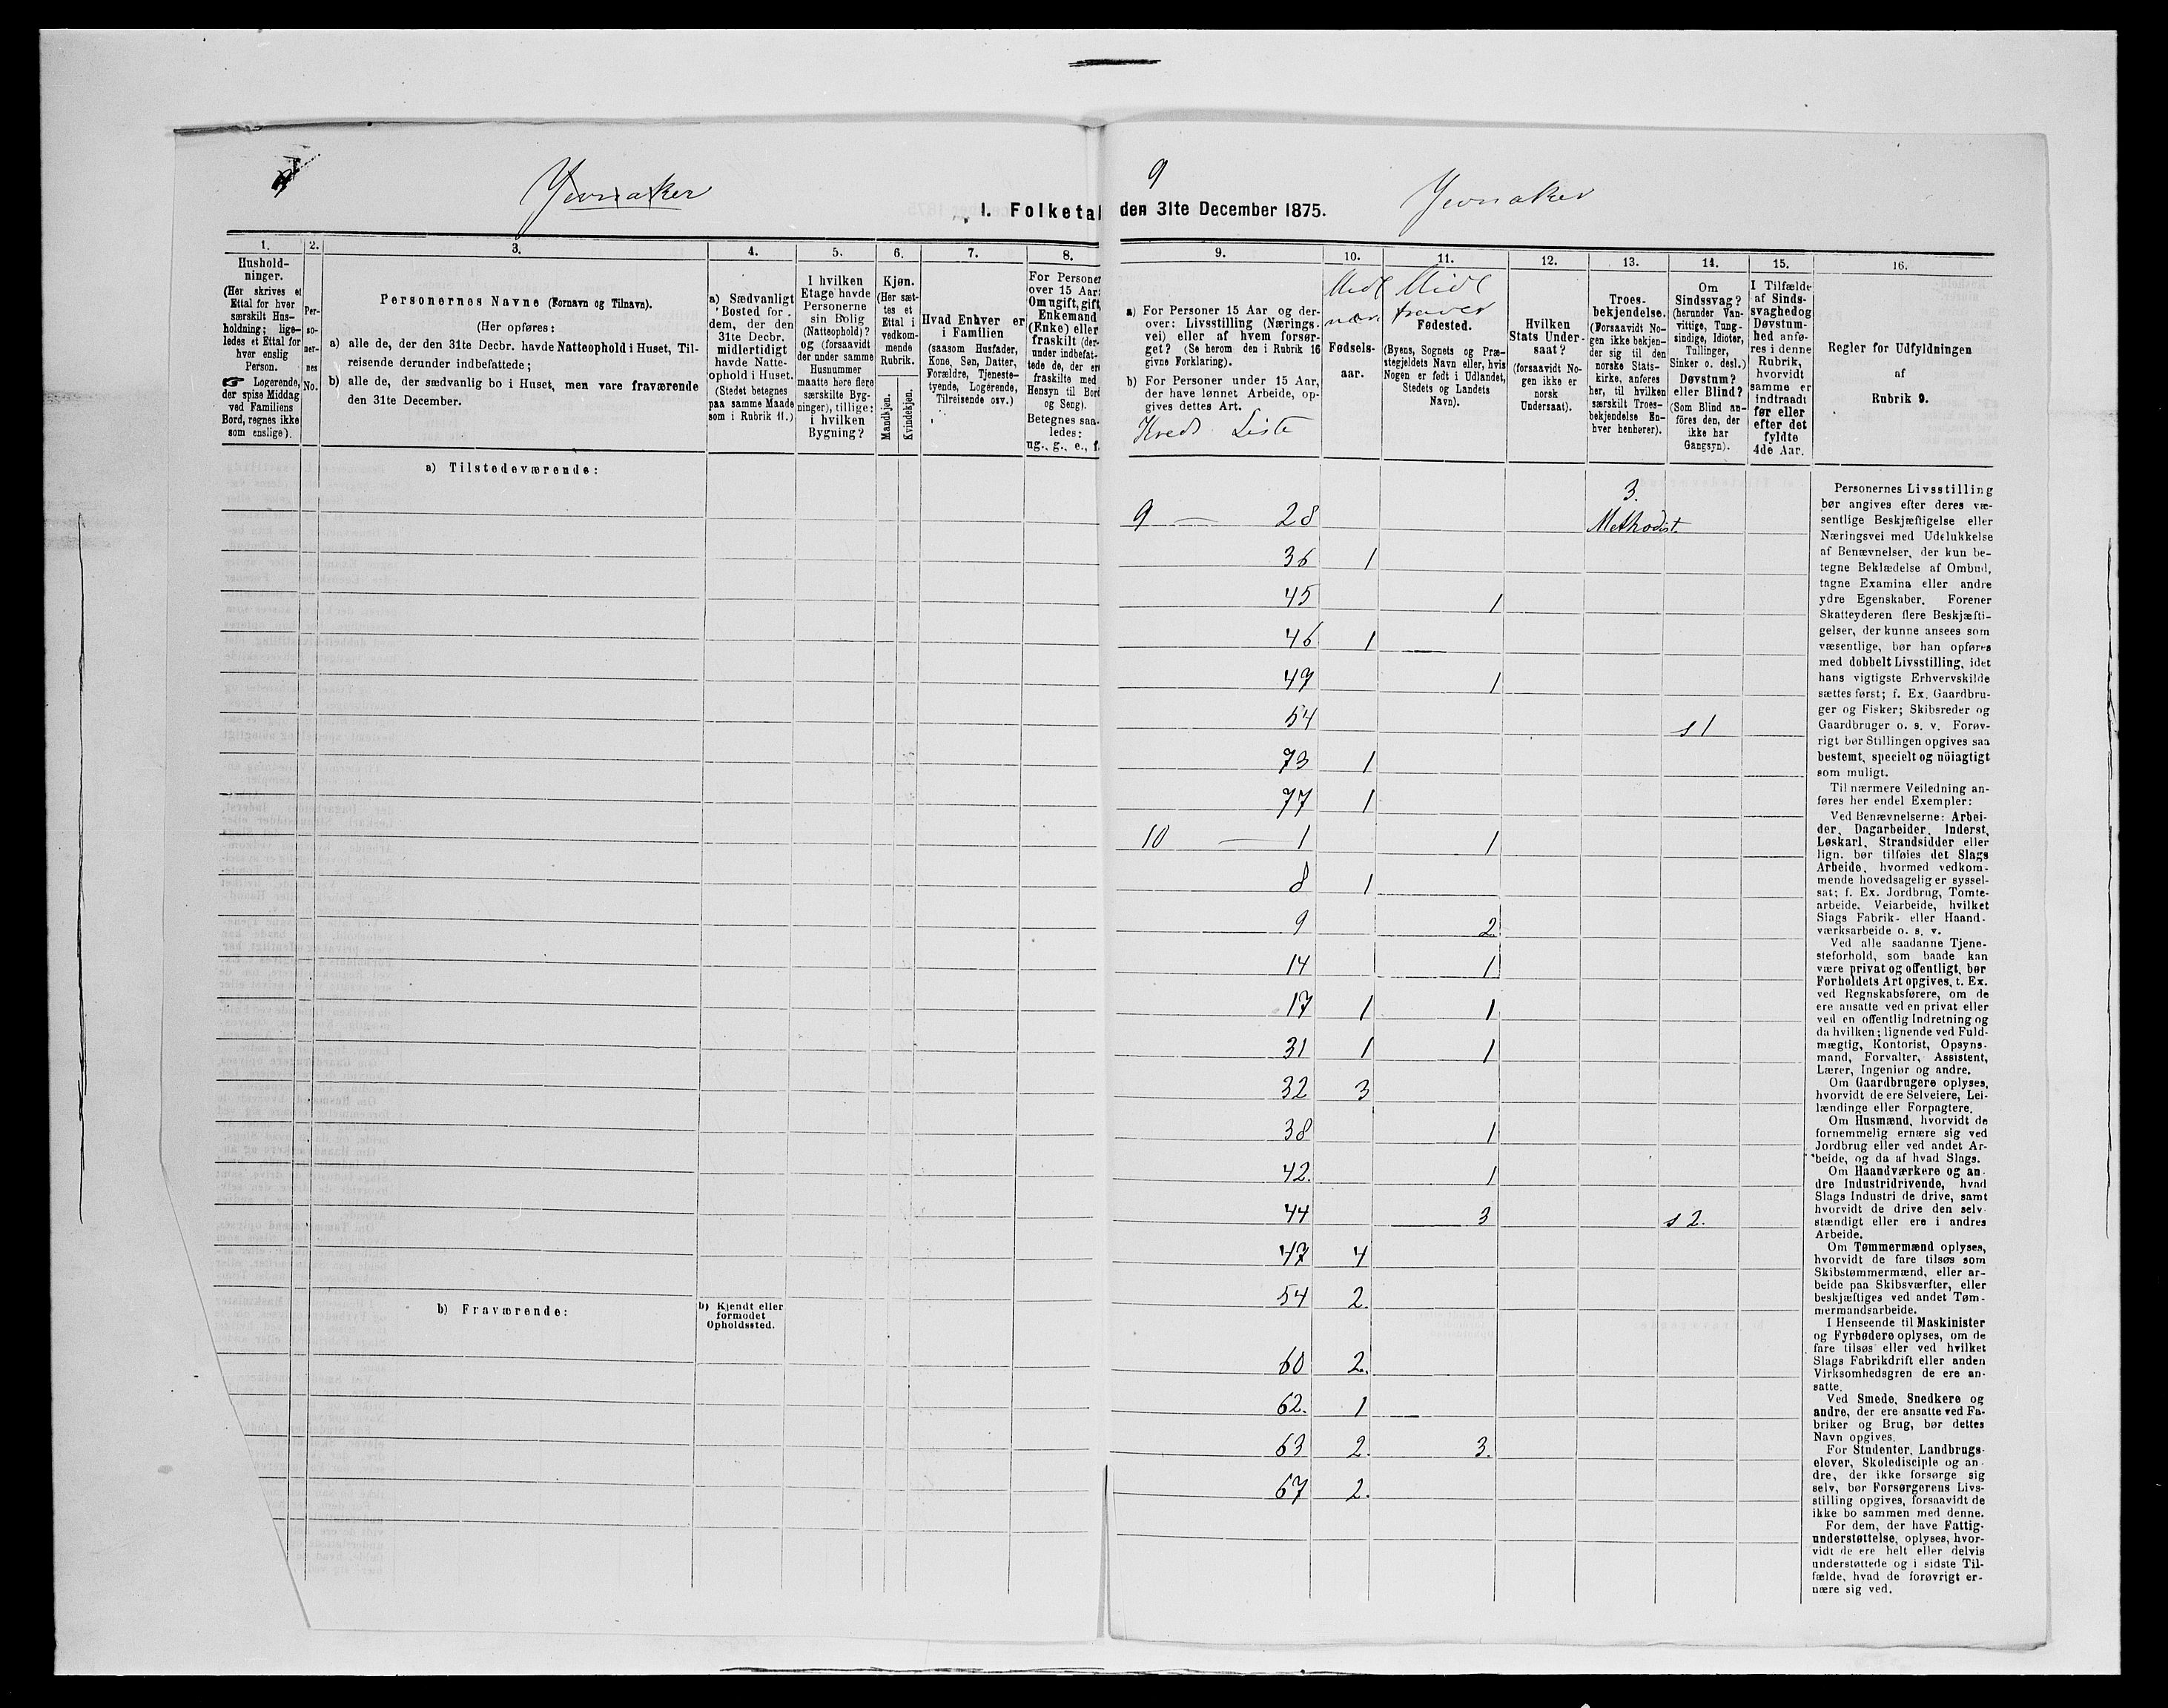 Jevnaker
9
Jevnaker
1. Folketal den 31te December 1875.
1.
2.
3.
4.
5.
6.
7.
8.
9.
10.
11.
12.
13.
14.
15.
16.
Hushold-
ninger.
(Her skrives et
Ettal for hver
særskilt Hus-
holdning; lige-
ledes et Ettal for
hver enslig
Person.
☞ Logerende,
der spise Middag
ved Familiens
Bord, regnes ikke
som enslige).
Per-
so-
ner-
nes
No.
Personernes Navne (Fornavn og Tilnavn).
(Her opføres:
a) alle de, der den 31te Decbr. havde Natteophold i Huset, Til-
reisende derunder indbefattede;
b) alle de, der sædvanlig bo i Huset, men vare fraværende
den 31te December.
a) Sædvanligt
Bosted for
dem, der den
31te Decbr.
midlertidigt
havde Natte-
ophold i Huset.
(Stedet betegnes
paa samme Maade
som i Rubrik 11.)
I hvilken
Etage havde
Personerne
sin Bolig
(Natteophold)?
og (forsaavidt
der under samme
Husnummer
maatte høre flere
særskilte Byg-
ninger), tillige:
i hvilken
Bygning?
Kjøn.
(Her sæt-
tes et
Ettal i
vedkom-
mende
Rubrik.
Mandkjøn.
Kvindekjøn.
Hvad Enhver er
i Familien
(saasom Husfader,
Kone, Søn, Datter,
Forældre, Tjeneste-
tyende, Logerende,
Tilreisende osv.)
For Personer
over 15 Aar:
Om ugift, gift,
Enkemand
(Enke) eller
fraskilt (der-
under indbefat-
tede de, der ere
fraskilte med
Hensyn til Bord
og Seng).
Betegnes saa-
ledes:
ug., g., e., f.
a) For Personer 15 Aar og der-
over: Livsstilling (Nærings-
vei) eller af hvem forsør-
get? (Se herom den i Rubrik 16
givne Forklaring).
b) For Personer under 15 Aar,
der have lønnet Arbeide, op-
gives dettes Art.
Kreds Liste
Midl
nær.
Fødsels-
aar.
Midl
fraver
Fødested.
(Byens, Sognets og Præ-
stegjeldets Navn eller, hvis
Nogen er født i Udlandet,
Stedets og Landets
Navn).
Hvilken
Stats Under-
saat?
(forsaavidt No-
gen ikke er
norsk
Undersaat).
Troes-
bekjendelse.
(Forsaavidt No-
gen ikke bekjen-
der sig til den
norske Stats-
kirke, anføres
her, til hvilken
særskilt Troes-
bekjendelse En-
hver henhører).
Om
Sindssvag?
(herunder Van-
vittige, Tung-
sindige, Idioter,
Tullinger,
Sinker o. desl.)
Døvstum?
eller Blind?
(Som Blind an-
føres den, der
ikke har
Gangsyn).
I Tilfælde
af Sinds-
svaghed og
Døvstum-
hed anfø-
res i denne
Rubrik,
hvorvidt
samme er
indtraadt
før eller
efter det
fyldte
4de Aar.
Regler for Udfyldningen
af
Rubrik 9.
a) Tilstedeværende:
3.
9 — 28 Methodist.
36 1
45 1
46 1
47 1
54 s 1
73 1
77 1
10 — 1 1
8 1
9 2
14 1
17 1 1
31 1 1
32 3
38 1
42. 1
44 3 s 2.
47 4
54 2.
b) Fraværende:
b) Kjendt eller
formodet
Opholdssted.
60 2.
62. 1
63 2. 3.
67 2.
Personernes Livsstilling
bør angives efter deres væ-
sentlige Beskjæftigelse eller
Næringsvei med Udelukkelse
af Benævnelser, der kun be-
tegne Beklædelse af Ombud,
tagne Examina eller andre
ydre Egenskaber. Forener
Skatteyderen flere Beskjæfti-
gelser, der kunne ansees som
væsentlige, bør han opføres
med dobbelt Livsstilling, idet
hans vigtigste Erhvervskilde
sættes først; f. Ex. Gaardbru-
ger og Fisker; Skibsreder og
Gaardbruger o. s. v. Forøv-
rigt bør Stillingen opgives saa
bestemt, specielt og nöiagtigt
som muligt.
Til nærmere Veiledning an-
føres her endel Exempler:
Ved Benævnelserne: Arbei-
der, Dagarbeider, Inderst,
Løskarl, Strandsidder eller
lign. bør tilføies det Slags
Arbeide, hvormed vedkom-
mende hovedsagelig er syssel-
sat; f. Ex. Jordbrug, Tomte-
arbeide, Veiarbeide, hvilket
Slags Fabrik- eller Haand-
værksarbeide o. s. v.
Ved alle saadanne Tjene-
steforhold, som baade kan
være privat og offentligt, bør
Forholdets Art opgives, t. Ex.
ved Regnskabsførere, om de
ere ansatte ved en privat eller
ved en offentlig Indretning og
da hvilken; lignende ved Fuld-
mægtig, Kontorist, Opsyns-
mand, Forvalter, Assistent,
Lærer, Ingeniør og andre.
Om Gaardbrugere oplyses,
hvorvidt de ere Selveiere, Lei-
lændinge eller Forpagtere.
Om Husmænd, hvorvidt de
fornemmelig ernære sig ved
Jordbrug eller ved andet Ar-
beide, og da af hvad Slags.
Om Haandværkere og an-
dre Industridrivende, hvad
Slags Industri de drive, samt
hvorvidt de drive den selv-
stændigt eller ere i andres
Arbeide.
Om Tømmermænd oplyses,
hvorvidt de fare tilsøs som
Skibstømmermænd, eller ar-
beide paa Skibsværfter, eller
beskjæftiges ved andet Tøm-
mermandsarbeide.
I Henseende til Maskinister
og Fyrbødere oplyses, om de
fare tilsøs eller ved hvilket
Slags Fabrikdrift eller anden
Virksomhedsgren de ere an-
satte.
Ved Smede, Snedkere og
andre, der ere ansatte ved Fa-
briker og Brug, bør dettes
Navn opgives.
For Studenter, Landbrugs-
elever, Skoledisciple og an-
dre, der ikke forsørge sig
selv, bør Forsørgerens Livs-
stilling opgives, forsaavidt de
ikke bo sammen med denne.
For dem, der have Fattig-
understøttelse, oplyses, hvor-
vidt de ere helt eller delvis
understøttede og i sidste Til-
fælde, hvad de forøvrigt er-
nære sig ved.